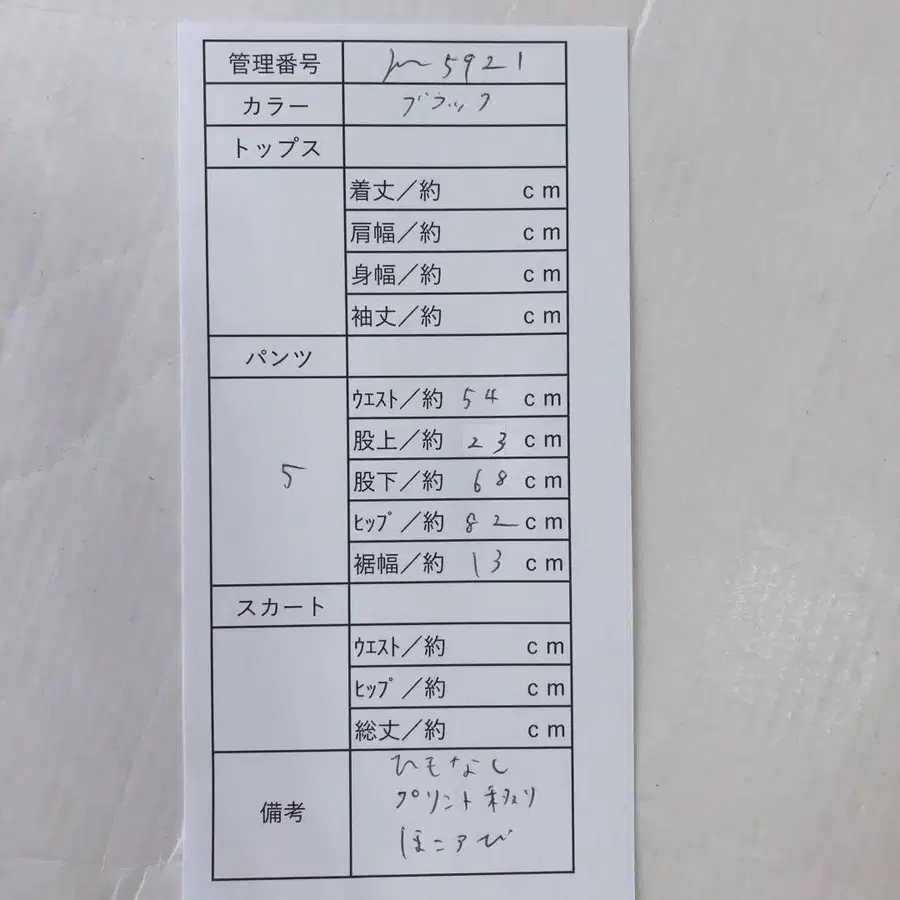 管理番号 m 5921
カラー ブラック
トップス
着丈／約 cm
肩幅／約 cm
身幅／約 cm
袖丈／約 cm
パンツ
5
ｳｴｽﾄ／約 54 cm
股上／約 23 cm
股下／約 68 cm
ﾋｯﾌﾟ／約 82 cm
裾幅／約 13 cm
スカート
ｳｴｽﾄ／約 cm
ﾋｯﾌﾟ／約 cm
総丈／約 cm
備考
ひもなし
プリント移り
ほころび